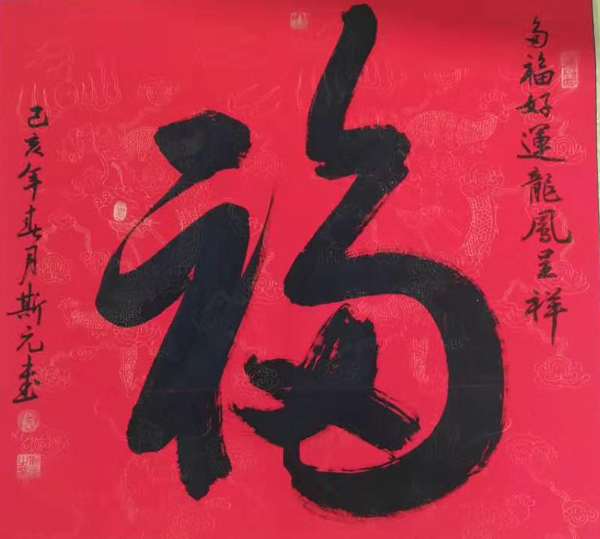 多福好運龍鳳呈祥
福
己亥年春月斯元書